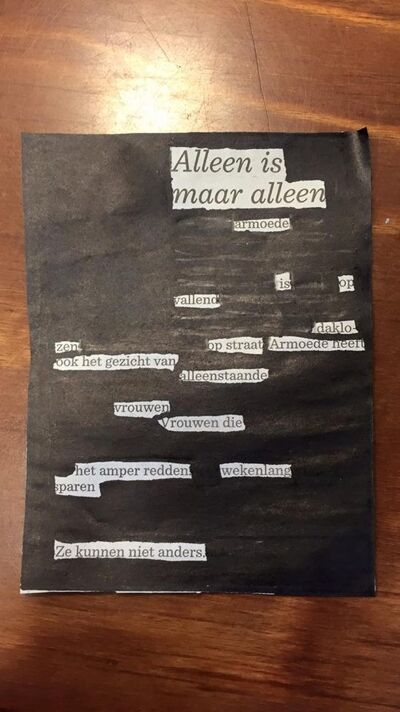 Alleen is
maar alleen
armoede
is op
vallend
daklo-
zen op straat Armoede heeft
ook het gezicht van
alleenstaande
vrouwen
Vrouwen die
het amper redden. wekenlang
sparen
Ze kunnen niet anders.